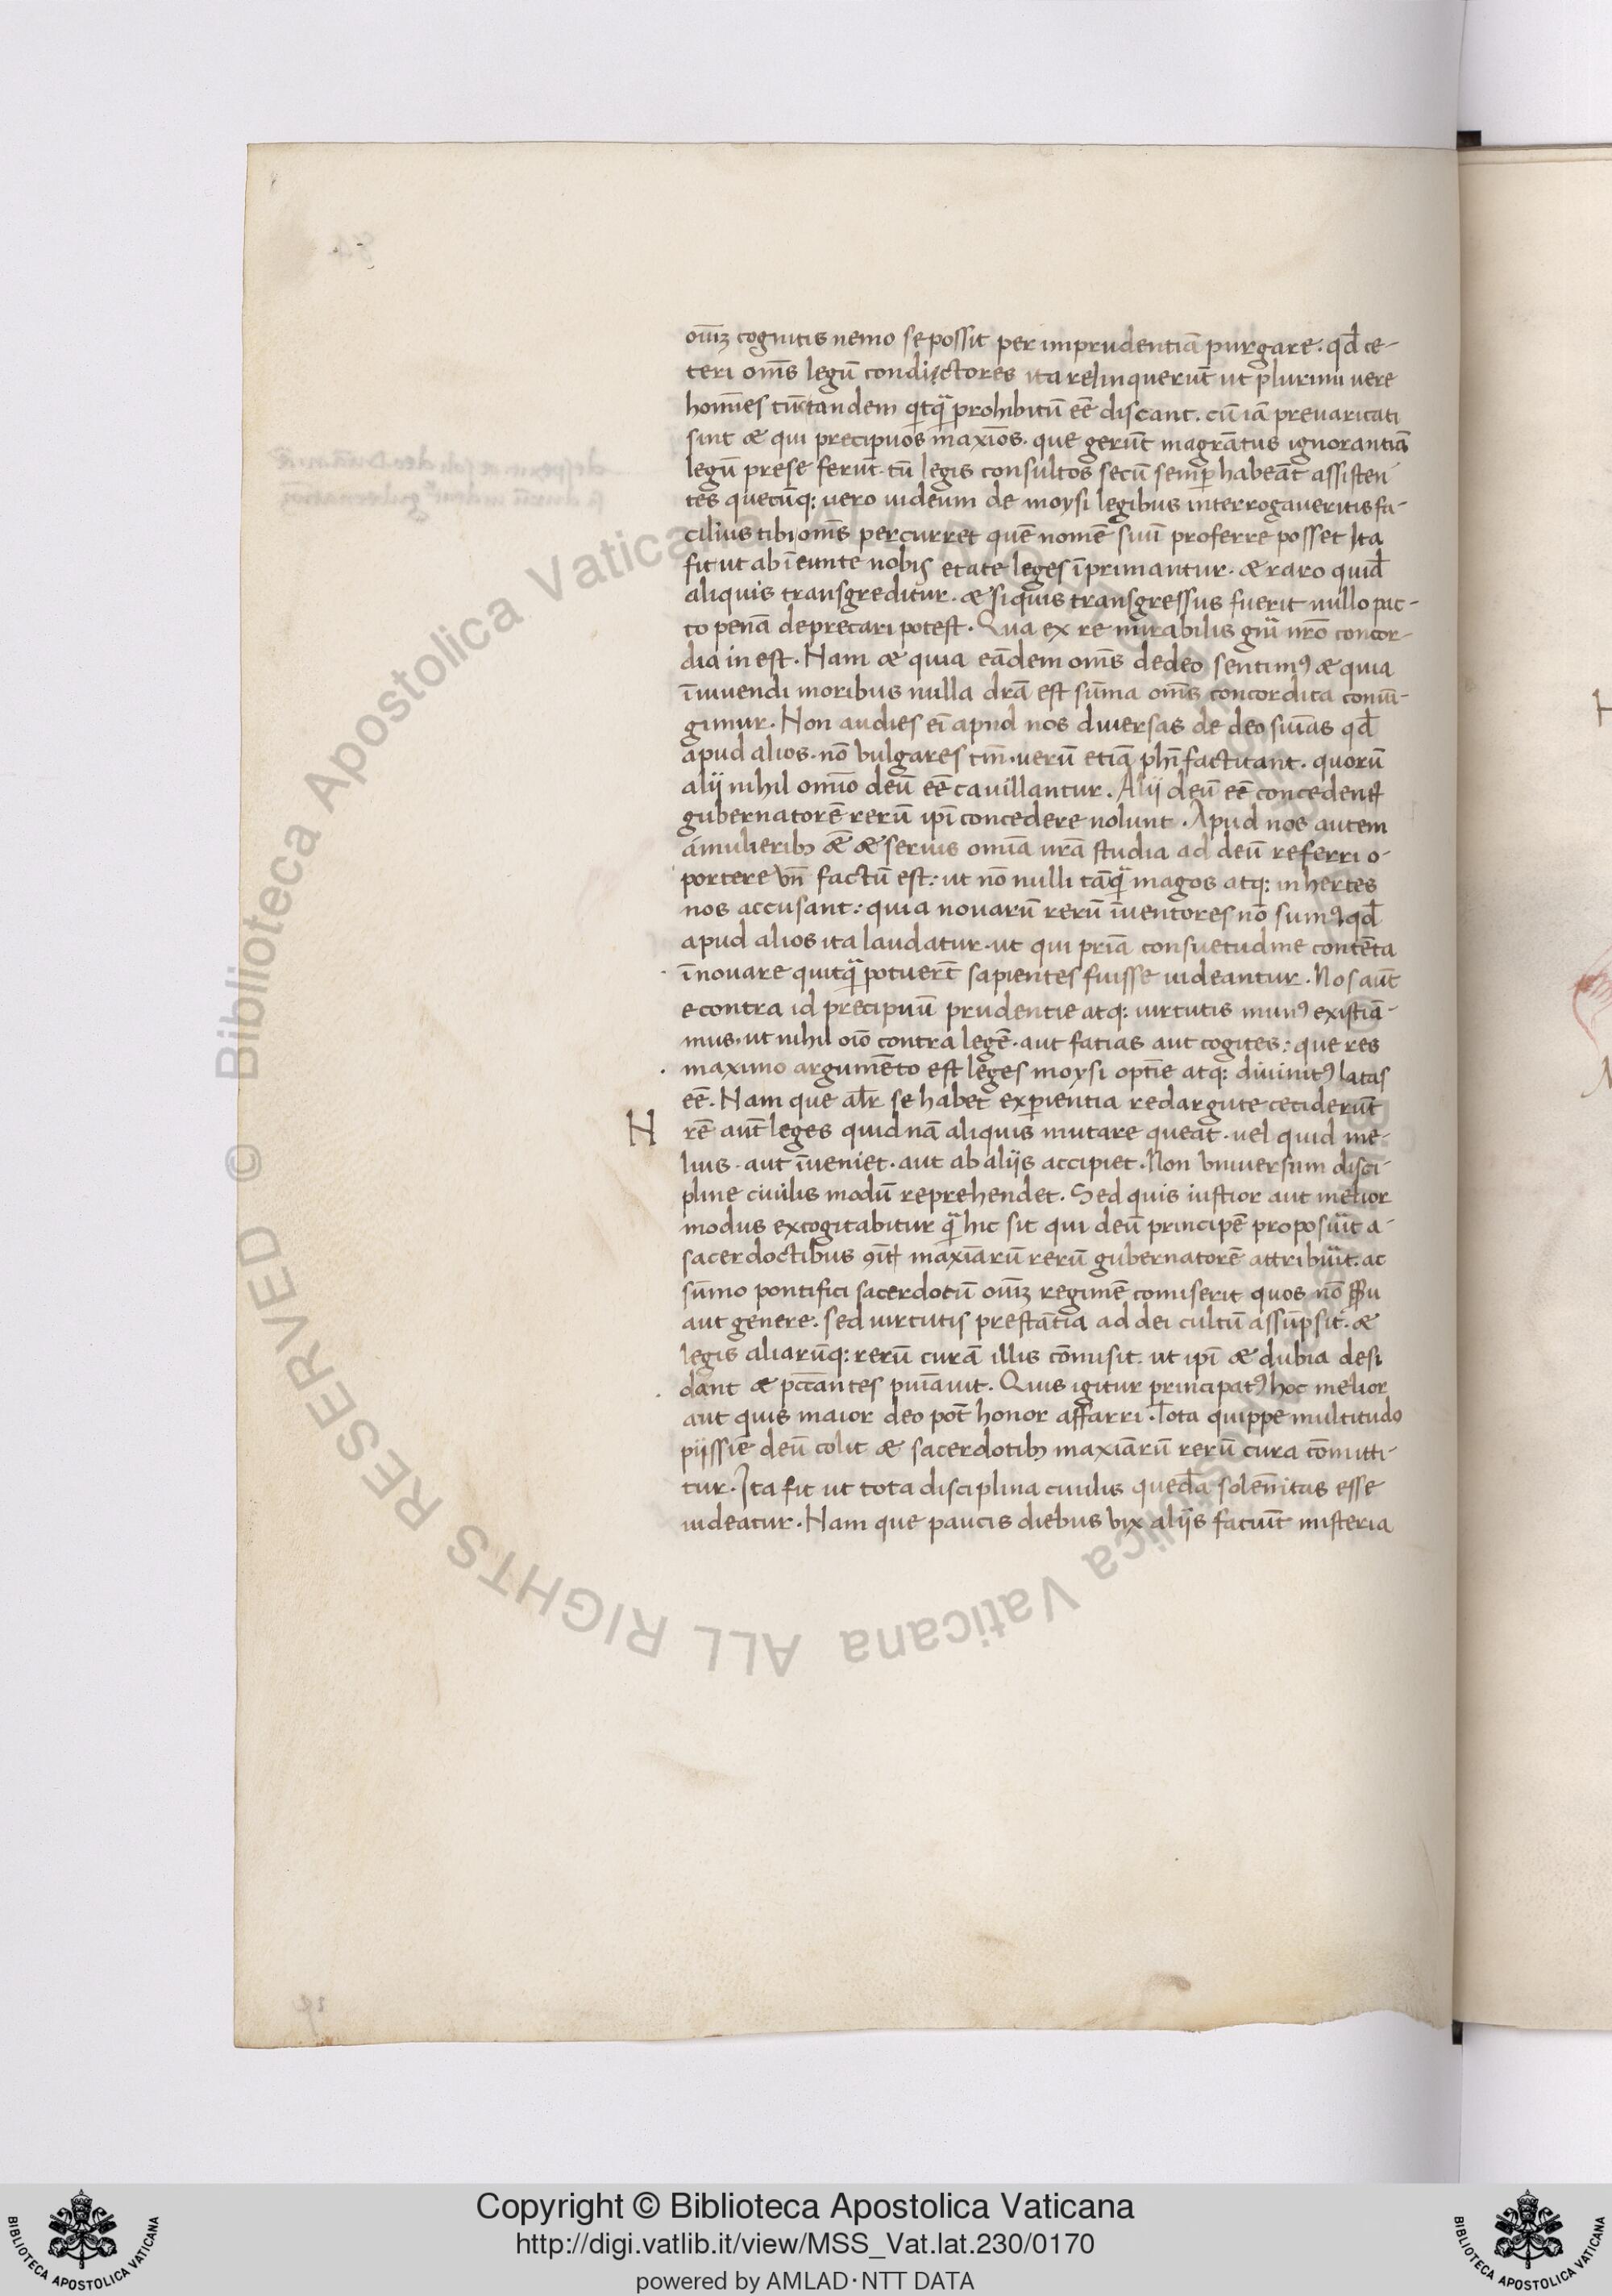 oīuȝ cognitis nemo se possit per imprudentiā purgare. qđ ce-
teri om̄s legū condictores ita relinquerūt ut plurimi uere
homīes tūc tandem qͥtqᷓ prohibitū eē discant. cū iā preuaricati
sint æ qui precipuos maxīos. que gerūt magrātus ignorantiā
legū prese ferūt. tū legis consultos secū semꝑ habeāt assisten
tes quecūq; uero iudeum de moysi legibus interrogaueritis fa-
cilius tibi om̄s percurret quē nomē suū proferre posset Ita
fit ut ab īeunte nobis etate leges īprimantur. æ raro quid
aliquis transgreditur. æ si quis transgressus fuerit nullo pac-
to penā deprecari potest. Qua ex re mirabilis gn̄i nr̄o concor-
dia in est. Nam æ quia eādem om̄s de deo sentimꝰ æ quia
ī uiuendi moribus nulla dr̄a est sūma om̄s concordita coniū-
gimur. Non audies eī apud nos diuersas de deo sn̄ias qđ
apud alios. nō bulgares tm̄. uerū etiā ph̄i factitant. quorū
alij nihil omīo deū eē cauillantur. Alij deū eē concedent
gubernatorē rerū ip̄i concedere nolunt. Apud nos autem
a mulieribꝫ ǣ æ seruis omīa nr̄a studia ad deū referri o-
portere vn̄ factū est: ut nō nulli tāqᷓ magos atq; in hertes
nos accusant: quia nouarū rerū īuentores nō sumꝰ qđ
apud alios ita laudatur. ut qui priā consuetudine contēta
ī nouare quitqᷓ potuerīt sapientes fuisse uideantur. Nos aūt
e contra id precipuū prudentie atq; uirtutis munꝰ existiā-
mus. ut nihil oīo contra legē. aut facias aut cogites: que res
maximo argumēto est leges moysi optīe atq; diuinitꝰ latas
eē. Nam que alr̄ se habet exꝑientia redargute ceciderūt
N rē aūt leges quid nā aliquis mutare queat. uel quid me-
lius. aut īueniet. aut ab alijs accipiet. Non vniuersum disci-
pline ciuilis modū reprehendet. Sed quis iustior aut melior
modus excogitabitur qᷓ hic sit qui deū principē proposuīt a-
sacerdoctibus maxīarū rerū gubernatorē attribuīt. ac
sūmo pontifici sacerdotū oīuȝ regimē comiserit quos nō
aut genere. sed uirtutis prestātia ad dei cultū assūpsit. æ
legis aliarūq; rerū curā illis cōmisit. ut ip̄i æ dubia desi
dant æ pc̄cantes puīauit. Quis igitur principatꝰ hoc melior
aut quis maior deo pot̄ honor affarri. Tota quippe multitudo
pijssīe deū colit æ sacerdotibꝫ maxīarū rerū cura cōmitti-
tur. Ita fit ut tota disciplina ciuilis quedā solēnitas esse
uideatur. Nam que paucis diebus vix alijs faciūt misteria
© Biblioteca Apostolica Vaticana ALL RIGHTS RESERVED
Copyright © Biblioteca Apostolica Vaticana
http://digi.vatlib.it/view/MSS_Vat.lat.230/0170
powered by AMLAD·NTT DATA
BIBLIOTECA APOSTOLICA VATICANA
BIBLIOTECA APOSTOLICA VATICANA